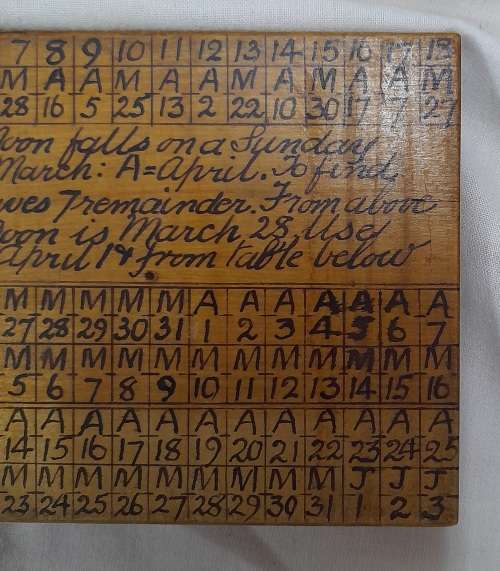 7 8 9 10 11 12 13 14 15 16 17 18
M A A M A A M A M A A M
28 16 5 25 13 2 22 10 30 17 7 27
oon falls on a Sunday
March: A=April. To find
ves 7 remainder. From above
oon is March 28. Use
April 14 from table below
M M M M M A A A A A A A
27 28 29 30 31 1 2 3 4 5 6 7
M M M M M M M M M M M M
5 6 7 8 9 10 11 12 13 14 15 16
A A A A A A A A A A A A
14 15 16 17 18 19 20 21 22 23 24 25
M M M M M M M M M J J J
23 24 25 26 27 28 29 30 31 1 2 3